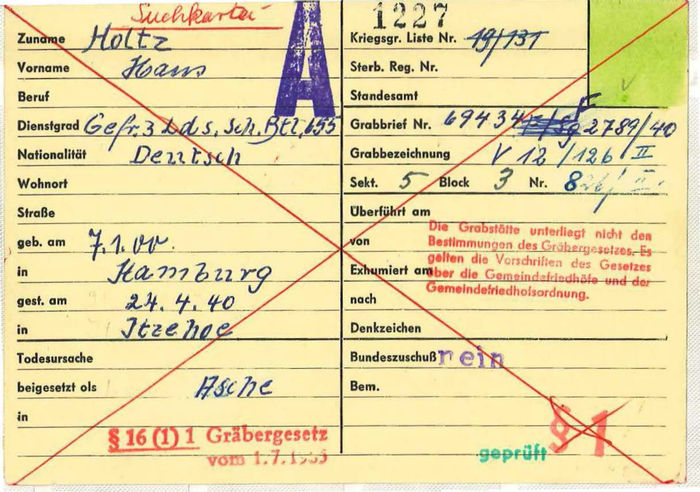 Suchkartei
A
1227
Zuname Holtz
Vorname Hans
Beruf
Dienstgrad Gefr. 3 Lds. Sch. Btl. 655
Nationalität Deutsch
Wohnort
Straße
geb. am 7.1.00.
in Hamburg
gest. am 24.4.40
in Itzehoe
Todesursache
beigesetzt als Asche
in
§ 16 (1) 1 Gräbergesetz
vom 1.7.1965
Kriegsgr. Liste Nr. 19/131
Sterb. Reg. Nr.
Standesamt
Grabbrief Nr. 69434 F 2789/40
Grabbezeichnung V 12/126 II
Sekt. 5 Block 3 Nr.
Überführt am
von
Exhumiert am
nach
Denkzeichen
Die Grabstätte unterliegt nicht den
Bestimmungen des Gräbergesetzes. Es
gelten die Vorschriften des Gesetzes
über die Gemeindefriedhöfe und der
Gemeindefriedhofsordnung.
Bundeszuschuß nein
Bem.
geprüft
§ 1